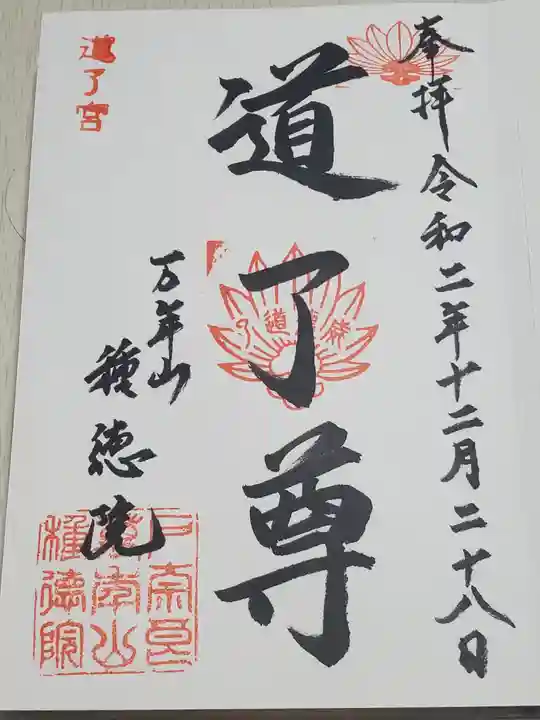 奉拝 令和二年十二月二十八日
道了尊
万年山
種徳院
道了宮
戸奈良
萬年山
種德院